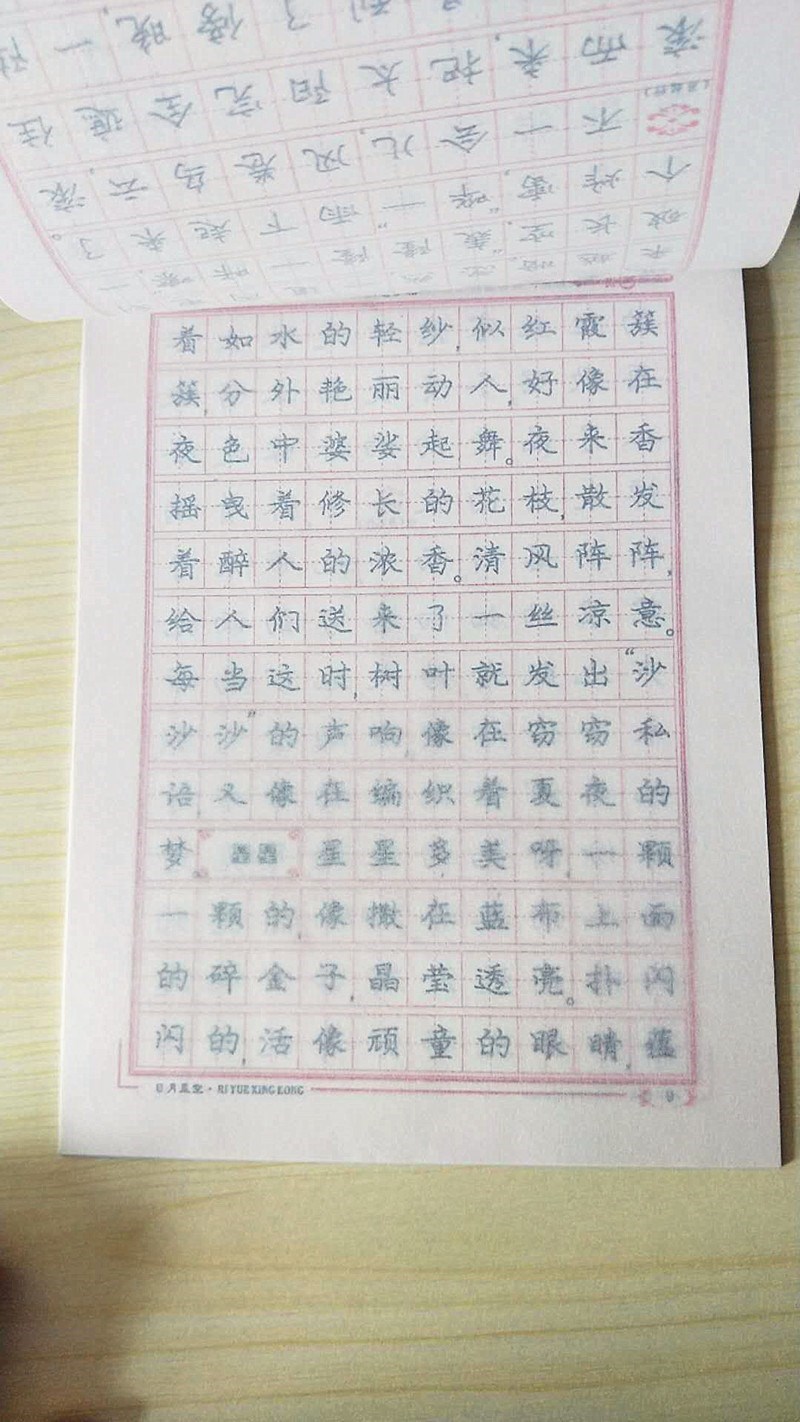 着如水的轻纱,似红霞簇
簇,分外艳丽动人,好像在
夜色中婆娑起舞。夜来香
摇曳着修长的花枝,散发
着醉人的浓香。清风阵阵,
给人们送来了一丝凉意。
每当这时,树叶就发出“沙
沙沙”的声响,像在窃窃私
语,又像在编织着夏夜的
梦。 星星 星星多美呀,一颗
一颗的,像撒在蓝布上面
的碎金子,晶莹透亮。扑闪
闪的,活像顽童的眼睛,蕴
日月星空·RI YUE XING KONG
9
不一会儿,风卷乌云,滚
滚而来,把太阳完全遮住